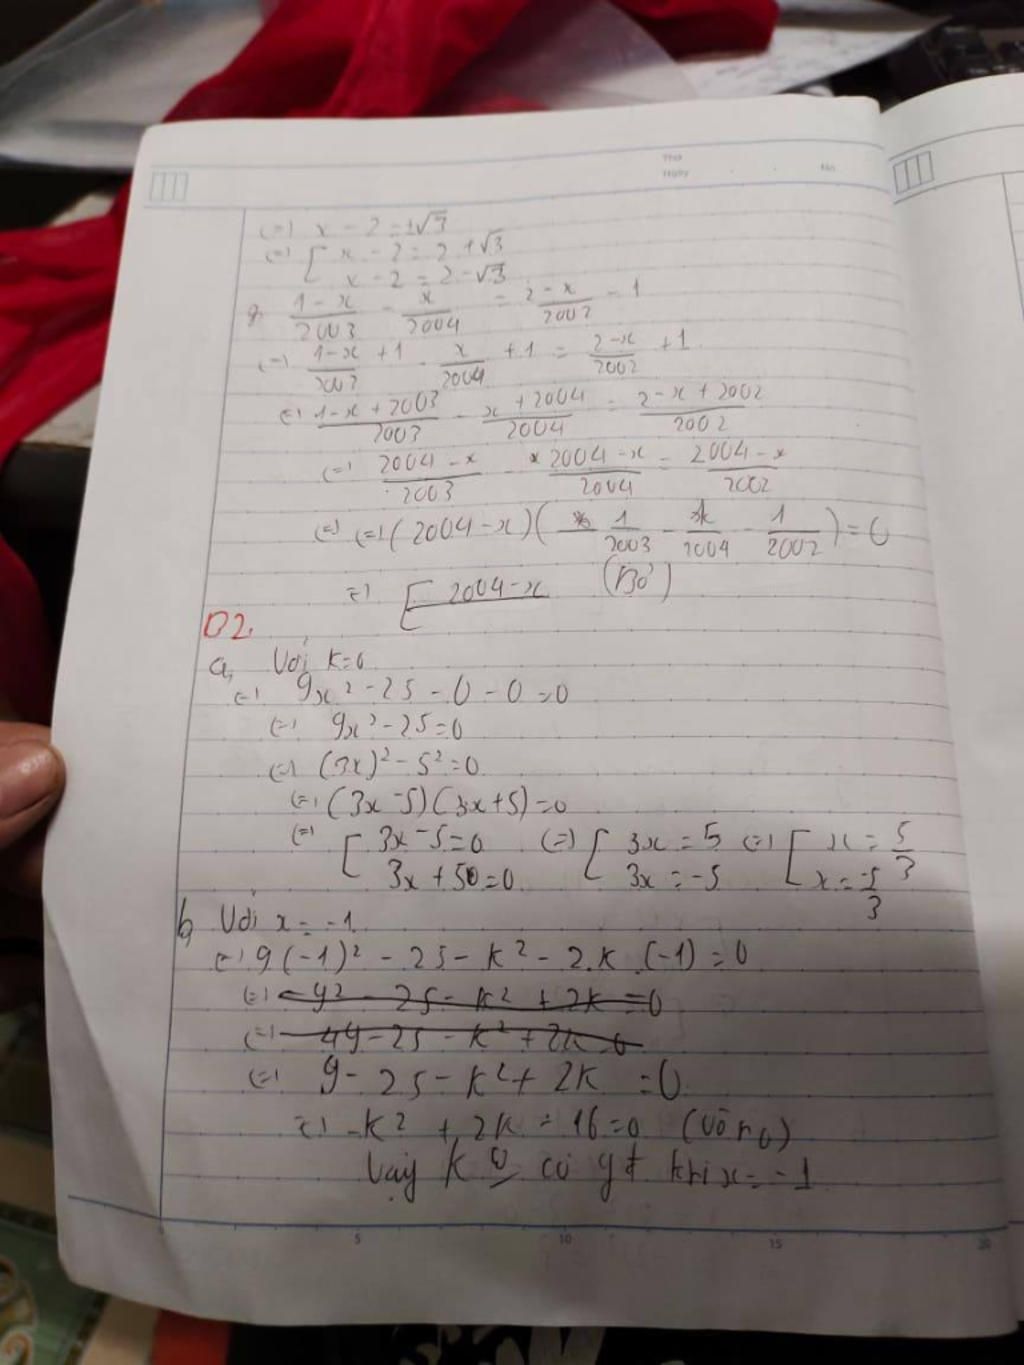 Thứ
Ngày No.
(=) x - 2 = ±√3
(=) [ x - 2 = 2 + √3
x - 2 = 2 - √3
g, (1-x)/2003 - x/2004 = (2-x)/2002 - 1
(=) (1-x)/2003 + 1 - x/2004 + 1 = (2-x)/2002 + 1
(=) (1-x+2003)/2003 - (x+2004)/2004 = (2-x+2002)/2002
(=) (2004-x)/2003 - (2004-x)/2004 = (2004-x)/2002
(=) (=) (2004-x)(1/2003 - 1/2004 - 1/2002) = 0
(=) [ 2004-x (Bỏ)
D2.
a, Với k=0
(=) 9x² - 25 - 0 - 0 = 0
(=) 9x² - 25 = 0
(=) (3x)² - 5² = 0
(=) (3x-5)(3x+5) = 0
(=) [ 3x-5=0 (=) [ 3x = 5 (=) [ x = 5/3
3x+50=0 3x = -5 x = -5/3
b, Với x = -1
(=) 9(-1)² - 25 - k² - 2.k.(-1) = 0
(=) -9² - 25 - k² + 2k = 0
(=) 49 - 25 - k² + 2k 0
(=) 9 - 25 - k² + 2k = 0
(=) -k² + 2k - 16 = 0 (vô n0)
Vậy k 0 có gt khi x = -1
5 10 15 20